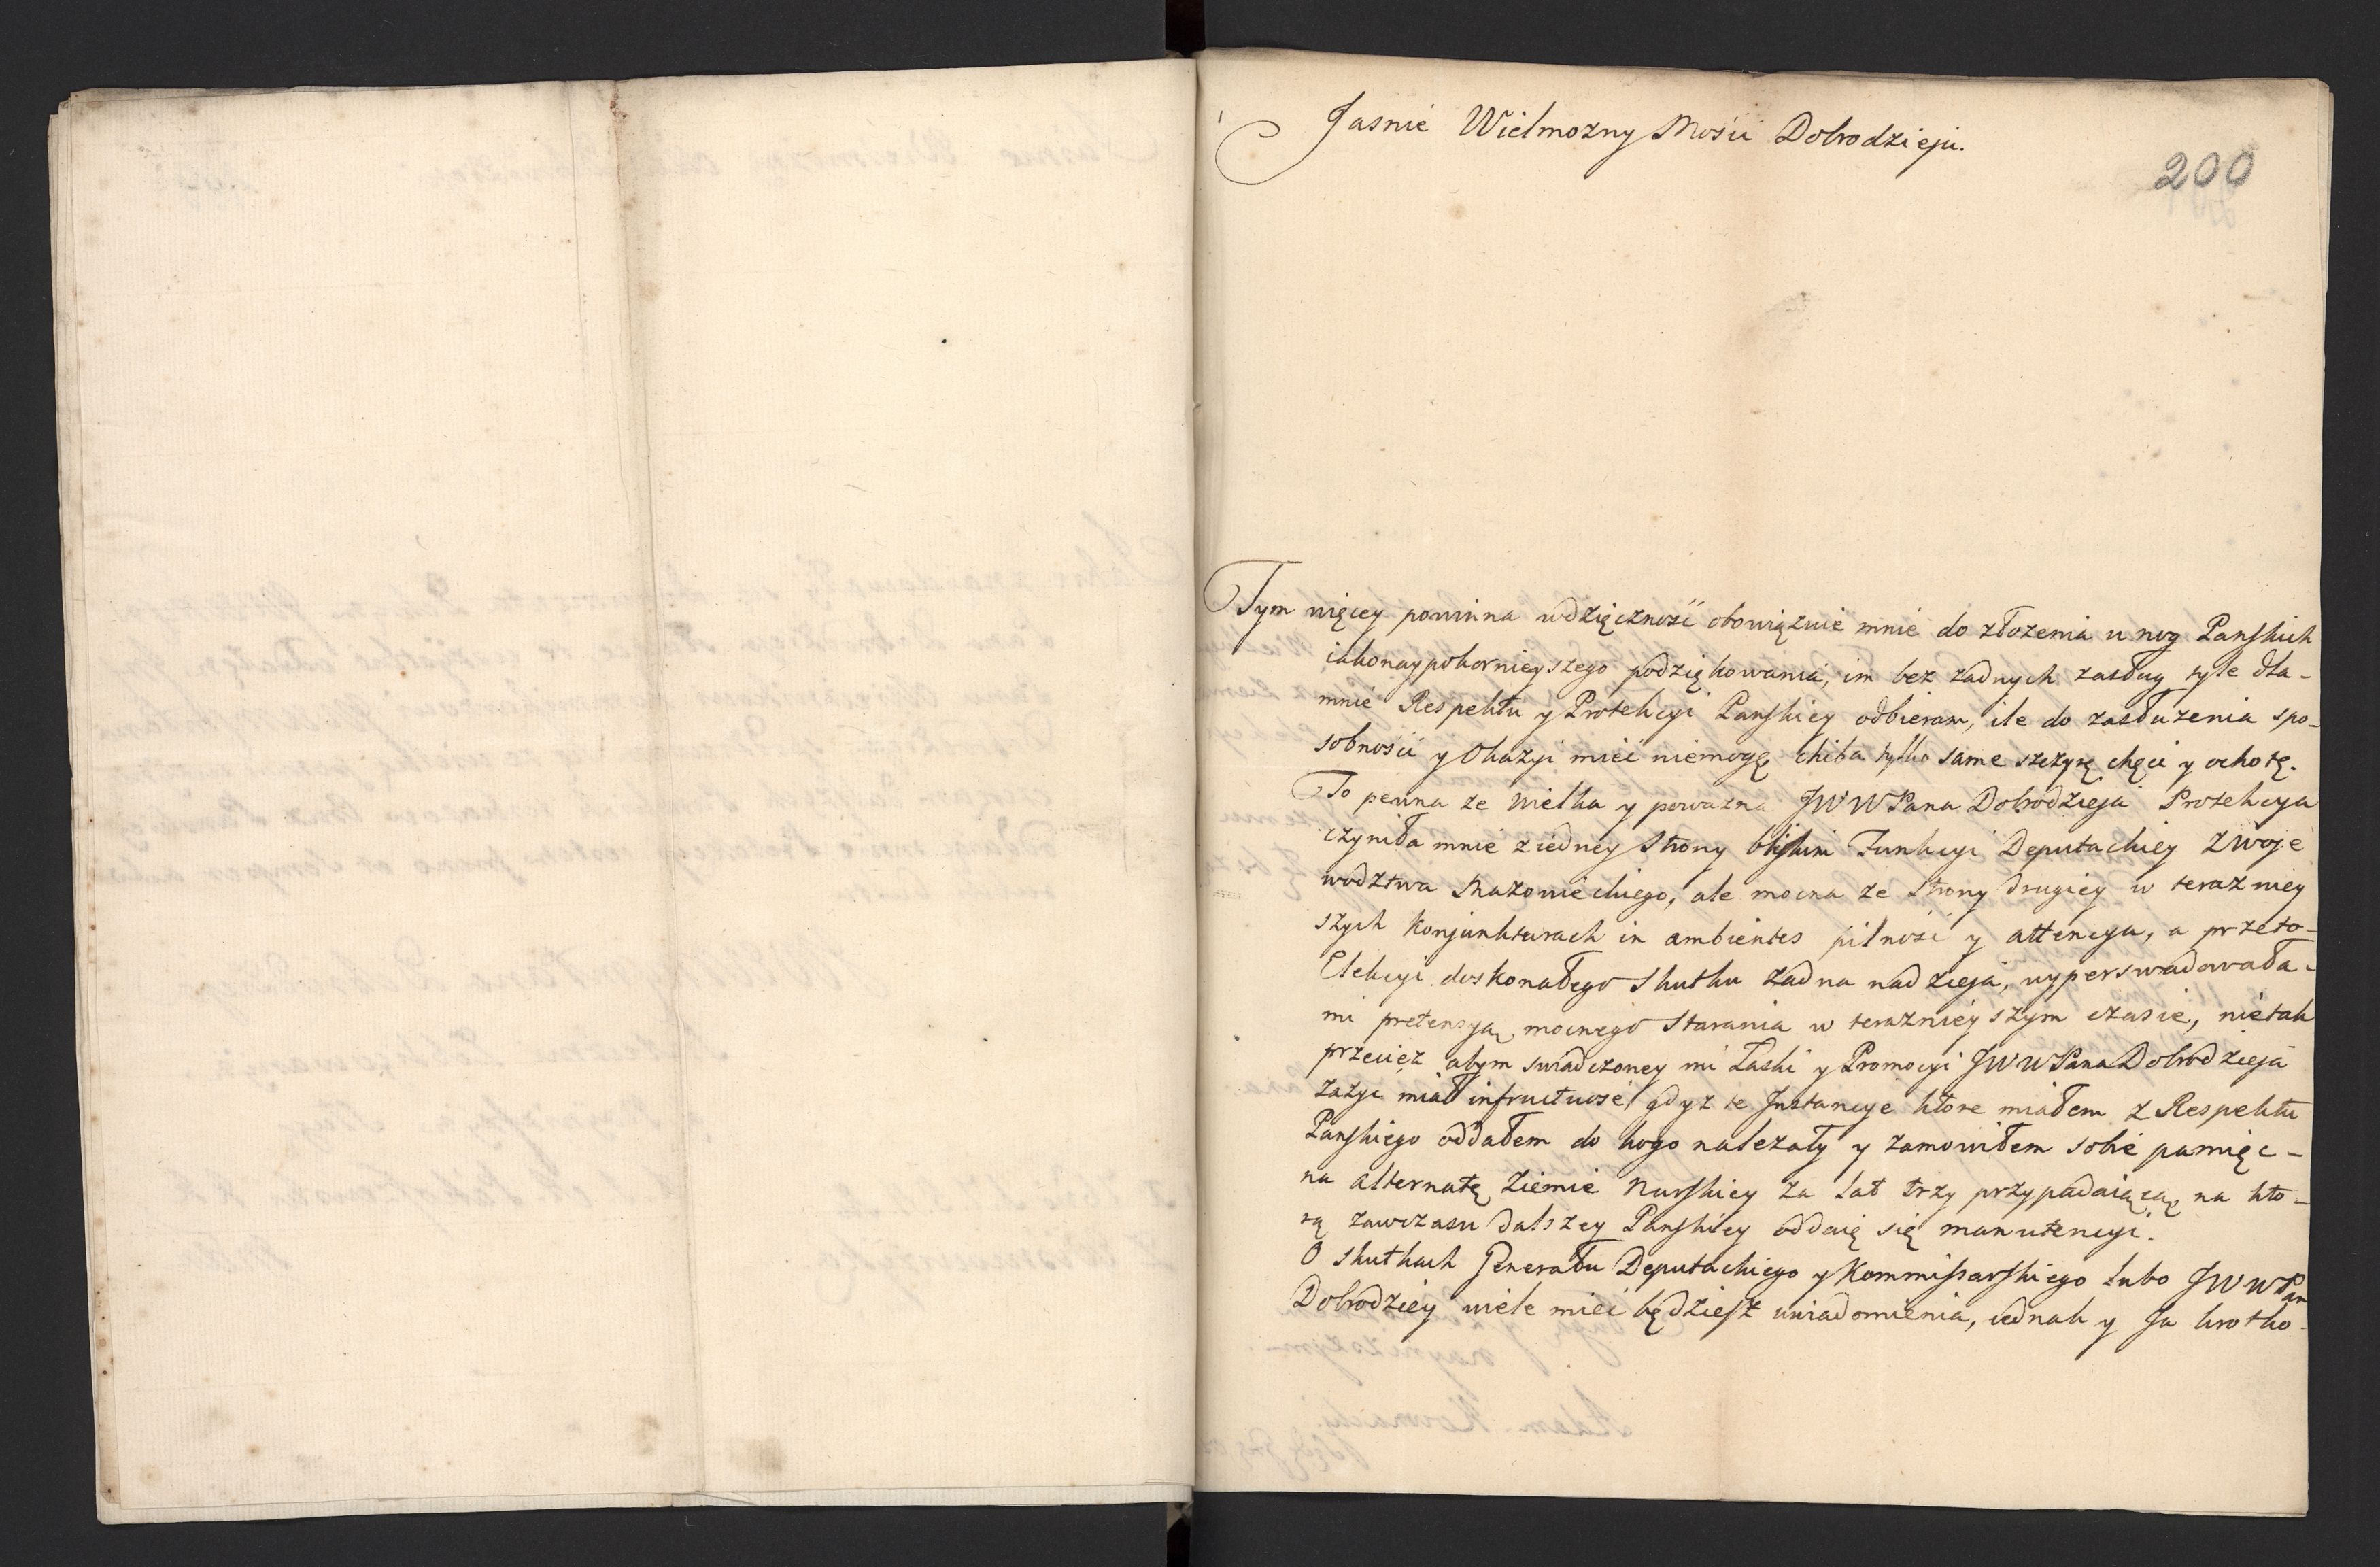 Jasnie Wielmozny Mosci Dobrodzieju.
200
Tym więcey powinna wdzięcznosc obowiązuie mnie do złozenia u nog Panskich
iakonaypokornieyszego podziękowania, im bez zadnych zasług tyle dla-
mnie Respektu y Protekcyi Panskiey odbieram, ile do zasłuzenia spo-
sobnosci y Okazyi miec niemogę chiba tylko same szczyrę chęci y ochotę.
To pewna ze wielka y powazna JWWPana Dobrodzieja Protekcya
czyniła mnie z iedney strony bliskim Funkcyi Deputackiey z Woje
wodztwa Mazowieckiego, ale mocna ze strony drugiey w terazniey
szych Konjunkturach in ambientes pilnosc y attencya, a przeto-
Elekcyi doskonałego skutku zadna nadzieja, wyperswadowała-
mi pretensyą mocnego starania w terazniejszym czasie, nietak
przeciez abym swiadczoney mi Łaski y Promocyi JWWPana Dobrodzieja
zazyc miał infructuose, gdyz te Instancye ktore miałem z Respektu
Panskiego oddałem do kogo nalezały y zamowiłem sobie pamięc-
na alternatę Ziemie Nurskiey za lat trzy przypadaiącą, na kto-
rą zawczasu dalszey Panskiey oddaię się manutencyi.
O skutkach Generału Deputackiego y Kommissarskiego lubo JWWPan
Dobrodziey wiele miec będziesz uwiadomienia, iednak y Ja krotko-